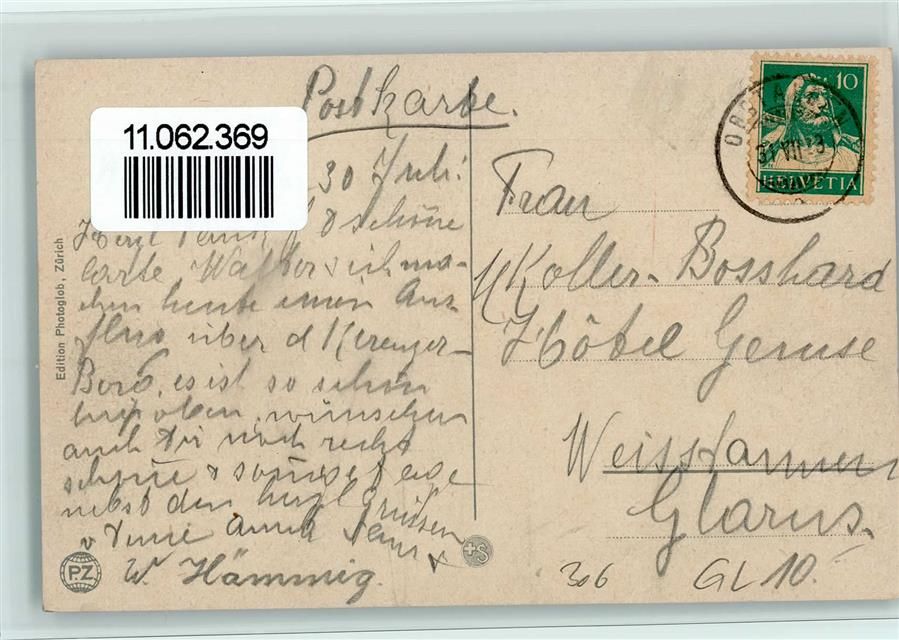 Postkarte.
11.062.369
30 Juli.
schöne
Karte Walter & ich ma-
chen heute einen Aus-
flug über d Kerenzer-
Berg, es ist so schön
hier oben, wünschen
auch Dir noch recht
schöne & sonnige Tage
nebst den herzl Grüssen
v Deine Anna &
W Hämmig.
Edition Photoglob, Zürich
PZ
+S
10
HELVETIA
OBSTALDEN
31 VII
Frau
Koller-Bosshard
Hôtel Gemse
Weisstannen
Glarus.
306
GL 10.-